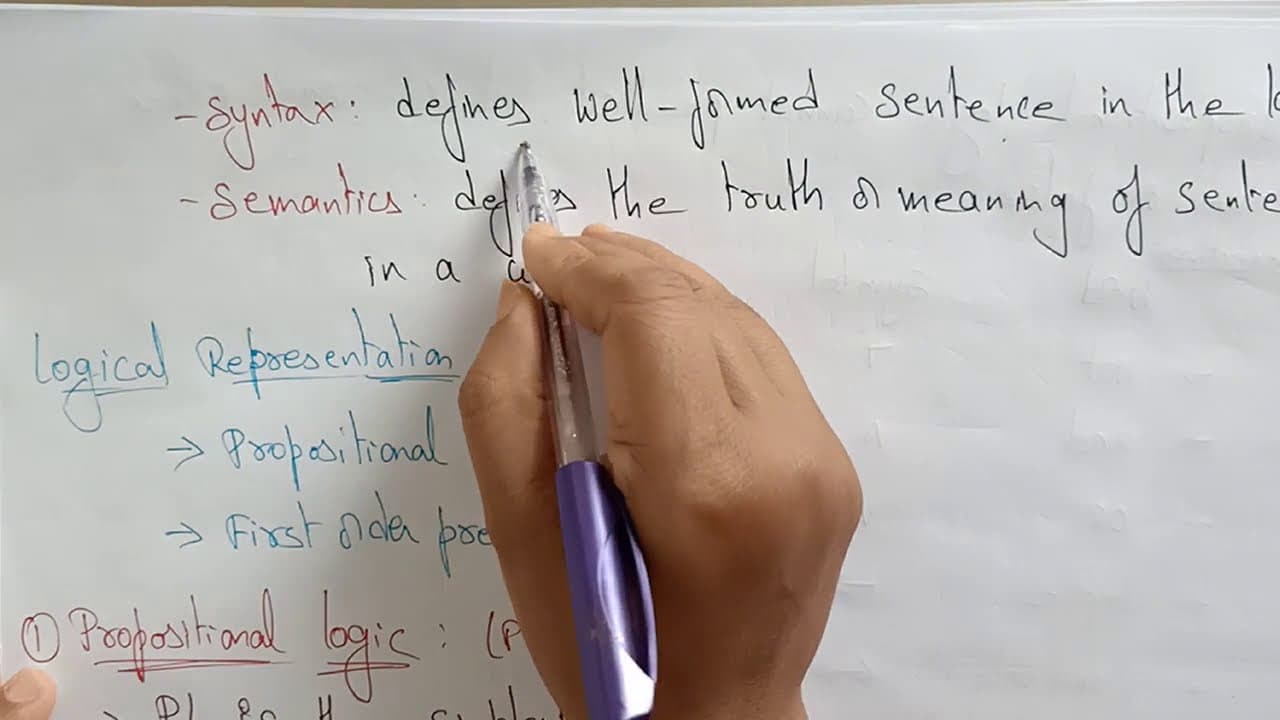 - Syntax: defines well-formed sentence in the
- Semantics: defines the truth or meaning of sente
in a
Logical Representation
→ Propositional
→ First order pre
① Propositional logic: (P